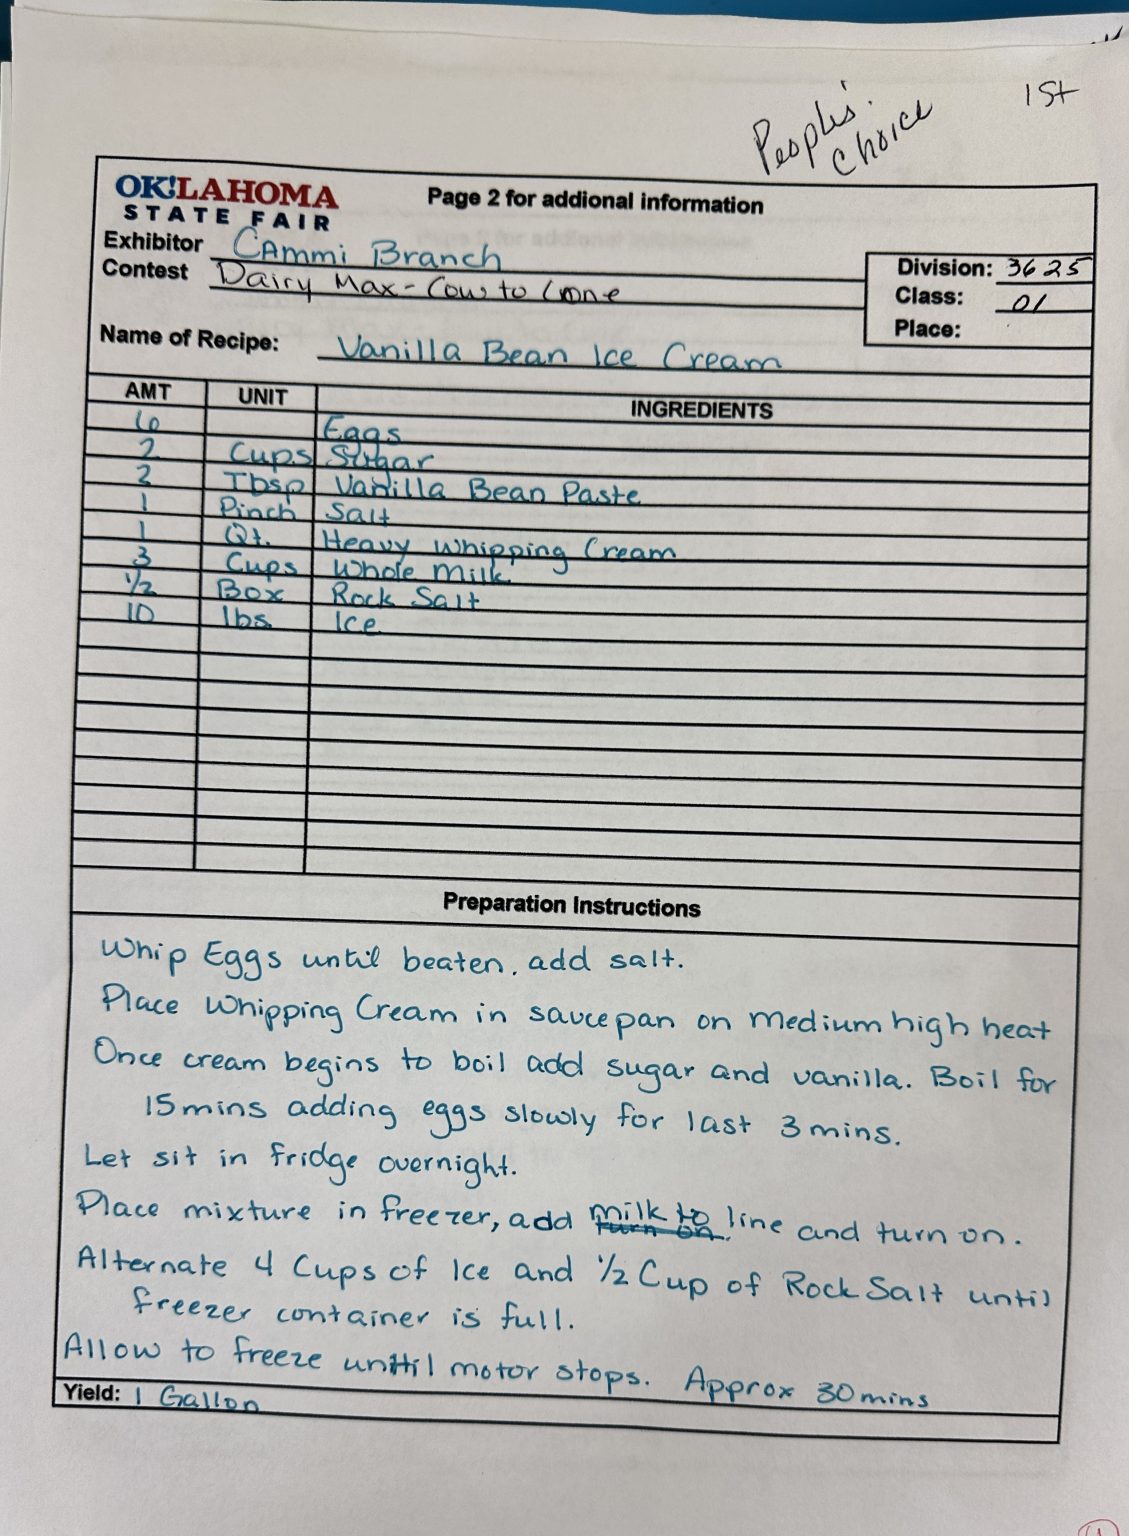 People's Choice
1st
OK!LAHOMA
STATE FAIR
Page 2 for addional information
Exhibitor CAmmi Branch
Contest Dairy Max - Cow to Cone
Division: 3625
Class: 01
Place:
Name of Recipe: Vanilla Bean Ice Cream
AMT UNIT INGREDIENTS
6 Eggs
2 Cups Sugar
2 Tbsp Vanilla Bean Paste
1 Pinch Salt
1 Qt. Heavy Whipping Cream
3 Cups Whole Milk
1/2 Box Rock Salt
10 lbs Ice
Preparation Instructions
Whip Eggs until beaten, add salt.
Place Whipping Cream in saucepan on medium high heat
Once cream begins to boil add sugar and vanilla. Boil for
15mins adding eggs slowly for last 3mins.
Let sit in fridge overnight.
Place mixture in freezer, add milk to line and turn on.
Alternate 4 Cups of Ice and 1/2 Cup of Rock Salt until
freezer container is full.
Allow to freeze until motor stops. Approx 30mins
Yield: 1 Gallon